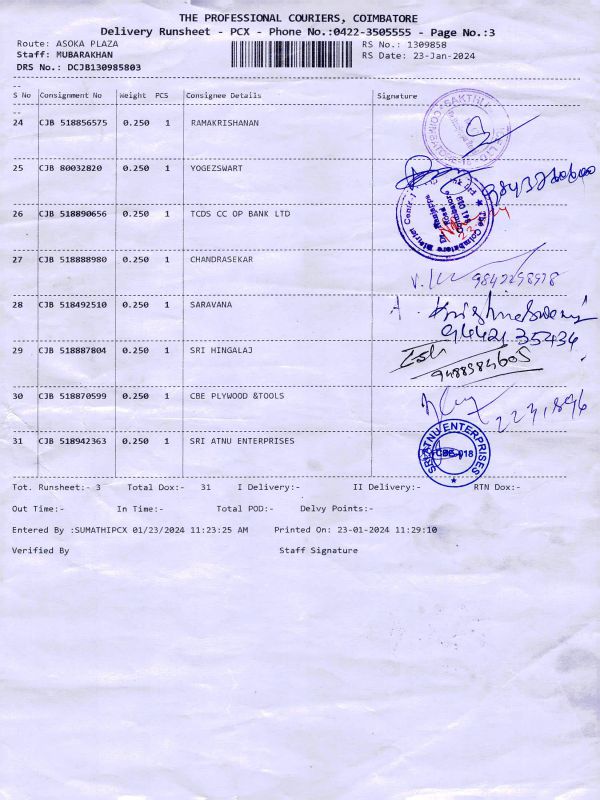 THE PROFESSIONAL COURIERS, COIMBATORE
Delivery Runsheet - PCX - Phone No.:0422-3505555 - Page No.:3
Route: ASOKA PLAZA RS No.: 1309858
Staff: MUBARAKHAN RS Date: 23-Jan-2024
DRS No.: DCJB130985803
S No Consignment No Weight PCS Consignee Details Signature
24 CJB 518856575 0.250 1 RAMAKRISHANAN
25 CJB 80032820 0.250 1 YOGEZSWART
26 CJB 518890656 0.250 1 TCDS CC OP BANK LTD
27 CJB 518888980 0.250 1 CHANDRASEKAR
9842298978
28 CJB 518492510 0.250 1 SARAVANA
94421 35434
29 CJB 518887804 0.250 1 SRI HINGALAJ
9488984605
30 CJB 518870599 0.250 1 CBE PLYWOOD &TOOLS
31 CJB 518942363 0.250 1 SRI ATNU ENTERPRISES
SRI ATNU ENTERPRISES
CBE-018
Tot. Runsheet:- 3 Total Dox:- 31 I Delivery:- II Delivery:- RTN Dox:-
Out Time:- In Time:- Total POD:- Delvy Points:-
Entered By :SUMATHIPCX 01/23/2024 11:23:25 AM Printed On: 23-01-2024 11:29:10
Verified By Staff Signature